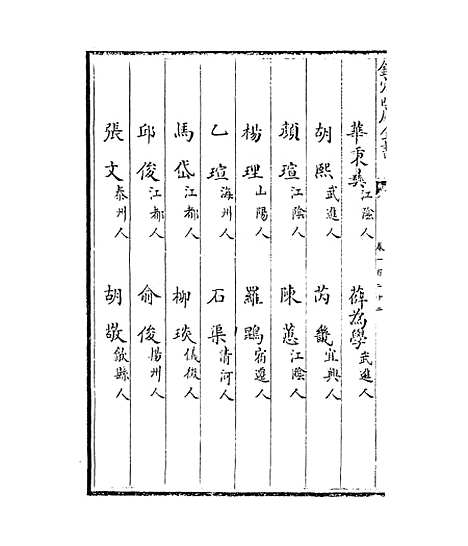 欽定四庫全書
卷一百二十二
華秉彝江陰人　薛為學武進人
胡熙武進人　芮畿宜興人
顏瑄江陰人　陳蒽江陰人
楊理山陽人　羅鵾宿遷人
乙瑄海州人　石渠清河人
馬岱江都人　柳琰儀真人
邱俊江都人　俞俊揚州人
張文泰州人　胡敬歙縣人